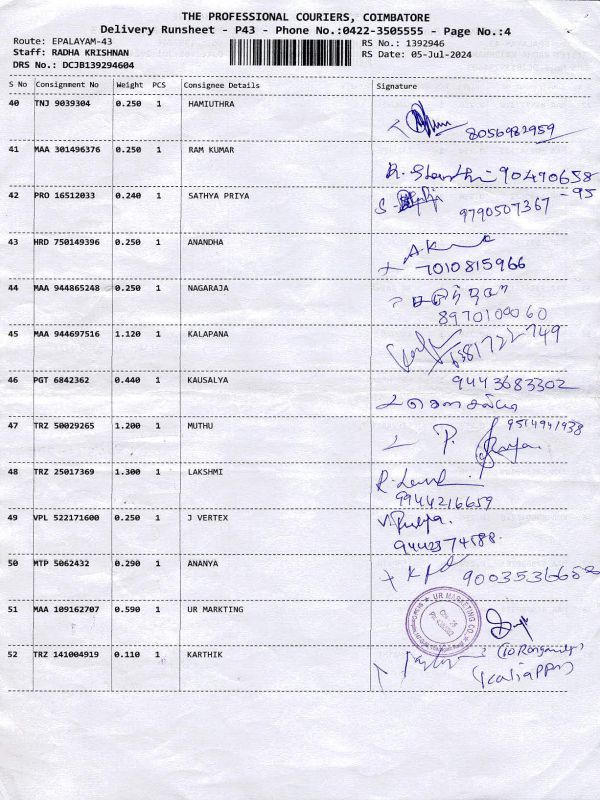 THE PROFESSIONAL COURIERS, COIMBATORE
Delivery Runsheet - P43 - Phone No.:0422-3505555 - Page No.:4
Route: EPALAYAM-43
RS No.: 1392946
Staff: RADHA KRISHNAN
RS Date: 05-Jul-2024
DRS No.: DCJB139294604
S No Consignment No Weight PCS Consignee Details Signature
40 TNJ 9039304 0.250 1 HAMIUTHRA
8056982959
41 MAA 301496376 0.250 1 RAM KUMAR
90490658
-95
42 PRO 16512033 0.240 1 SATHYA PRIYA
9790507367
43 HRD 750149396 0.250 1 ANANDHA
7010815966
44 MAA 944865248 0.250 1 NAGARAJA
8970100060
45 MAA 944697516 1.120 1 KALAPANA
6381722749
46 PGT 6842362 0.440 1 KAUSALYA
9443683302
47 TRZ 50029265 1.200 1 MUTHU
9514941938
P.
48 TRZ 25017369 1.300 1 LAKSHMI
9944216659
49 VPL 522171600 0.250 1 J VERTEX
9442374588
50 MTP 5062432 0.290 1 ANANYA
9003536658
51 MAA 109162707 0.590 1 UR MARKTING
UR MARKETING CO.
52 TRZ 141004919 0.110 1 KARTHIK